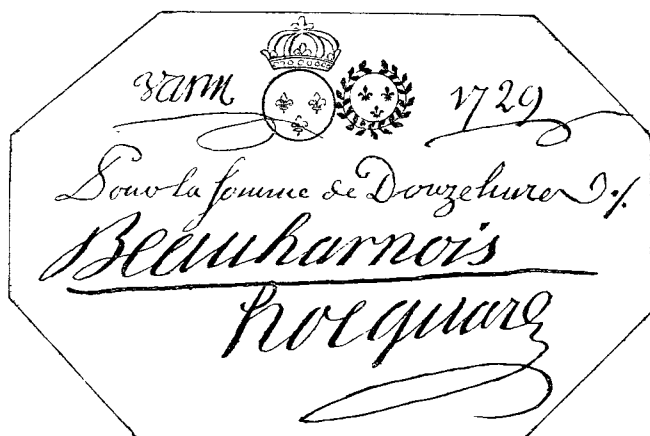 1729
Pour la somme de Douze liures
Beauharnois
hocquart